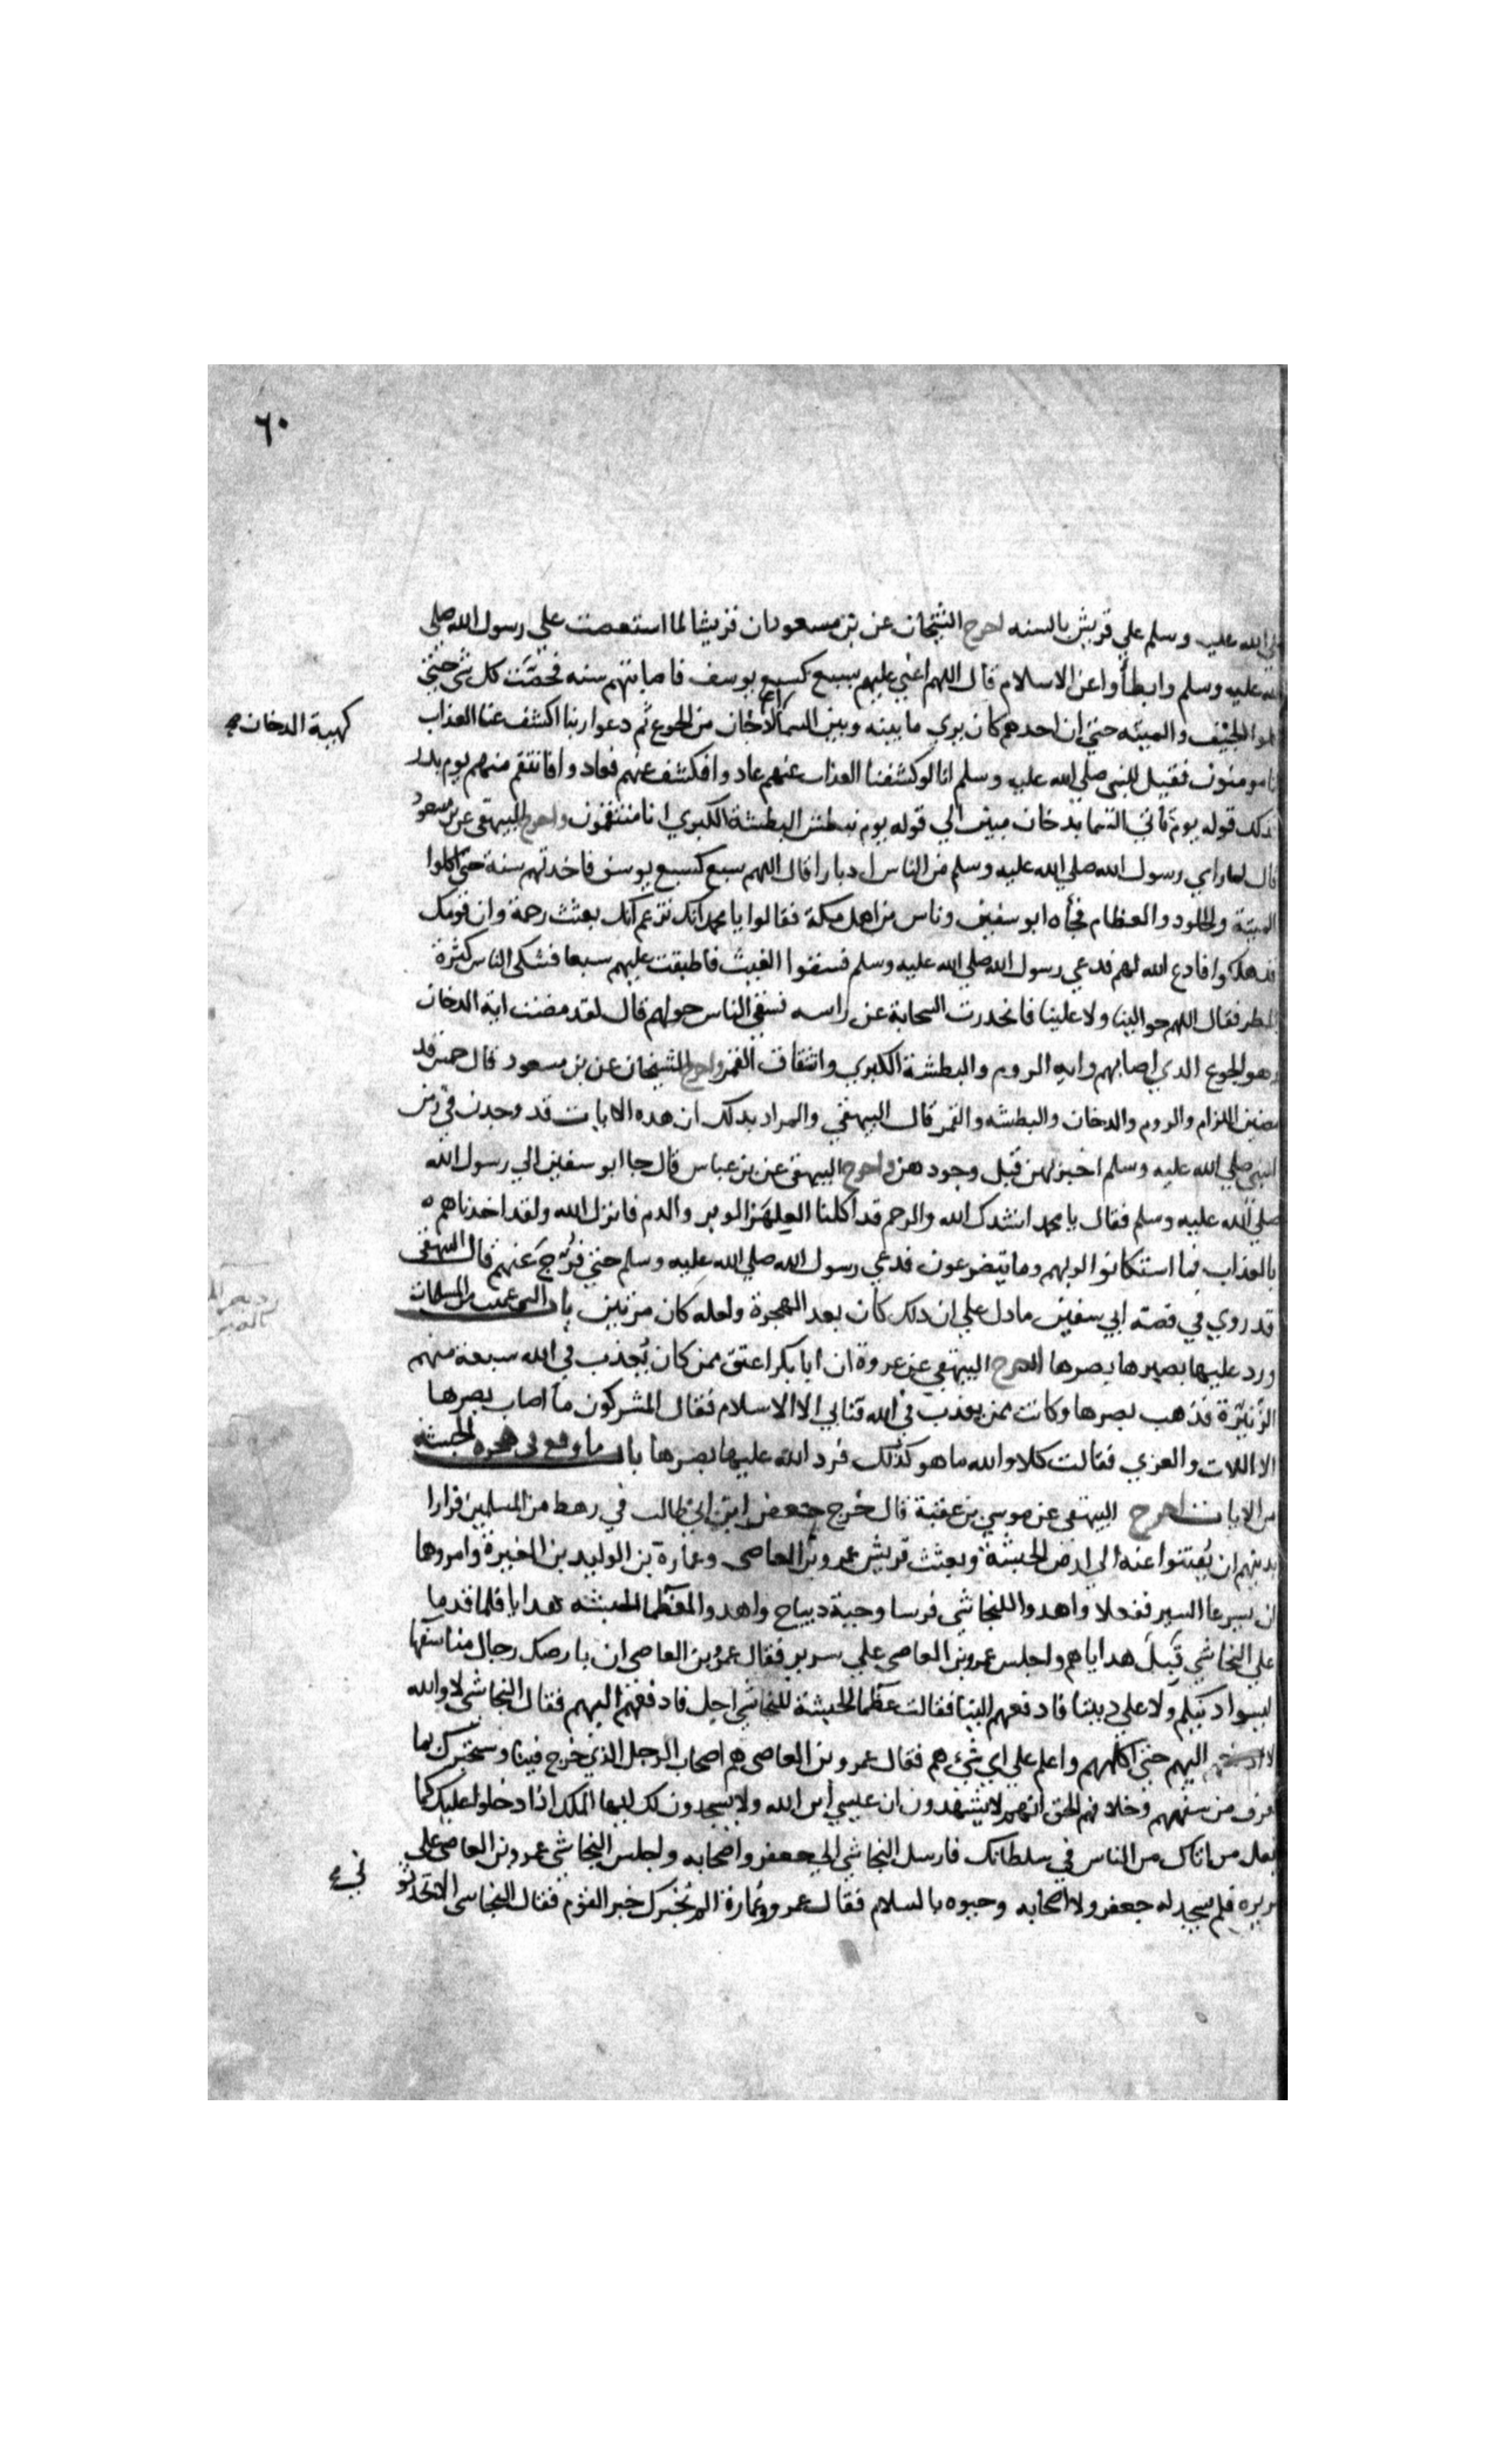 ٦٠
الله عليه وسلم علي قريش بالسنه اخرج الشيخان عن بن مسعود ان قريشا لما استعصت علي رسول الله صلي
الله عليه وسلم وابطأوا عن الاسلام قال اللهم اعني عليهم بسبع كسبع يوسف فاصابتهم سنه فحصّت كل شي حتي
الجيف والميته حتي ان احدهم كان يري ما بينه وبين السما كهية الدخان من الجوع ثم دعوا ربنا اكشف عنا العذاب
كهيية الدخان
انا مومنون فقيل للنبي صلي الله عليه وسلم انا لو كشفنا العذاب عنهم عادوا فكشف عنهم فعادوا فانتقم منهم يوم بدر
فذلك قوله يوم تأتي السما بدخان مبين الي قوله يوم نبطش البطشة الكبري انا منتقمون واخرج البيهقي عن بن مسعود
قال لما راي رسول الله صلي الله عليه وسلم من الناس ادبارا قال اللهم سبع كسبع يوسف فاخذتهم سنة حتي اكلوا
الميتة والجلود والعظام فجأه ابو سفين وناس من اهل مكة فقالوا يا محمد انك تزعم انك بعثت رحمة وان قومك
قد هلكوا فادع الله لهم فدعي رسول الله صلي الله عليه وسلم فسقوا الغيث فاطبقت عليهم سبعا فشكي الناس كثرة
المطر فقال اللهم حوالينا ولا علينا فانحدرت السحابة عن راسه فسقي الناس حولهم قال لقد مضت اية الدخان
وهو الجوع الذي اصابهم وايه الروم والبطشة الكبري وانشقاق القمر واخرج الشيخان عن بن مسعود قال خمس قد
مضين اللزام والروم والدخان والبطشه والقمر قال البيهقي والمراد بذلك ان هده الايات قد وجدن في زمن
النبي صلي الله عليه وسلم اخبر بهن قبل وجودهن واخرج البيهقي عن بن عباس قال جا ابو سفين الي رسول الله
صلي الله عليه وسلم فقال يا محمد انشدك الله والرحم قد اكلنا العلهز الوبر والدم فانزل الله ولقد اخذناهم
بالعذاب فما استكانوا لربهم وما يتضرعون فدعي رسول الله صلي الله عليه وسلم حتي فرّج عنهم قال البيهقي
قد روي في قصة ابي سفين ما دل علي ان ذلك كان بعد الهجرة ولعله كان مرتين باب التي عميت من المسلمات
ورد عليها بصيرها بصرها اخرج البيهقي عن عروة ان ابا بكر اعتق ممن كان يُعذب في الله سبعة منهم
الزنيّرة فذهب بصرها وكانت ممن يعذب في الله فتابي الا الاسلام فقال المشركون ما اصاب بصرها
الا اللات والعزي فقالت كلا والله ما هو كذلك فرد الله عليها بصرها باب ما وقع في هجره الحبشه
من الايات اخرج البيهقي عن موسي بن عقبة قال خرج جعفر ابن ابي طالب في رهط من المسلمين فرارا
بدينهم ان يُفتنوا عنه الي ارض الحبشة وبعثت قريش عمرو بن العاصي وعمارة بن الوليد بن المغيرة وامروها
ان يسرعا السير ففعلا واهدوا للنجاشي فرسا وجبة ديباج واهدوا لعظما الحبشه هدايا فلما قدما
علي النجاشي قبل هداياهم واجلس عمرو بن العاصي علي سرير فقال عمرو بن العاصي ان بارضك رجال منا سفها
ليسوا علي دينكم ولا علي ديننا فادفعهم الينا فقالت عظما الحبشة للنجاشي اجل فادفعهم اليهم فقال النجاشي لا والله
لا ادفعهم اليهم حتي اكلمهم واعلم علي اي شيء هم فقال عمرو بن العاصي هم اصحاب الرجل الذي خرج فينا وسنخبرك بما
نعرف من سفههم وخلافهم الحق انهم لا يشهدون ان عيسي ابن الله ولا يسجدون لك ايها الملك اذا دخلوا عليك كما
يفعل من اتاك من الناس في سلطانك فارسل النجاشي الي جعفر واصحابه واجلس النجاشي عمرو بن العاصي علي
سريره فلم يسجد له جعفر ولا اصحابه وحيوه بالسلام فقال عمرو وعمارة الم نُخبرك خبر القوم فقال النجاشي الا تحدثو
ني